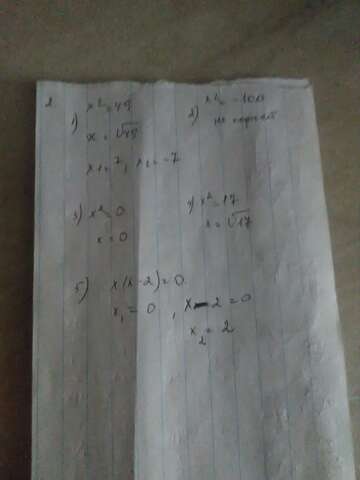 2.
1) x² = 49
x = √49
x₁ = 7, x₂ = -7
2) x² = -100
3) x² = 0
x = 0
4) x² = 17
x = √17
5) x(x-2)=0
x₁ = 0, x-2=0
x₂ = 2